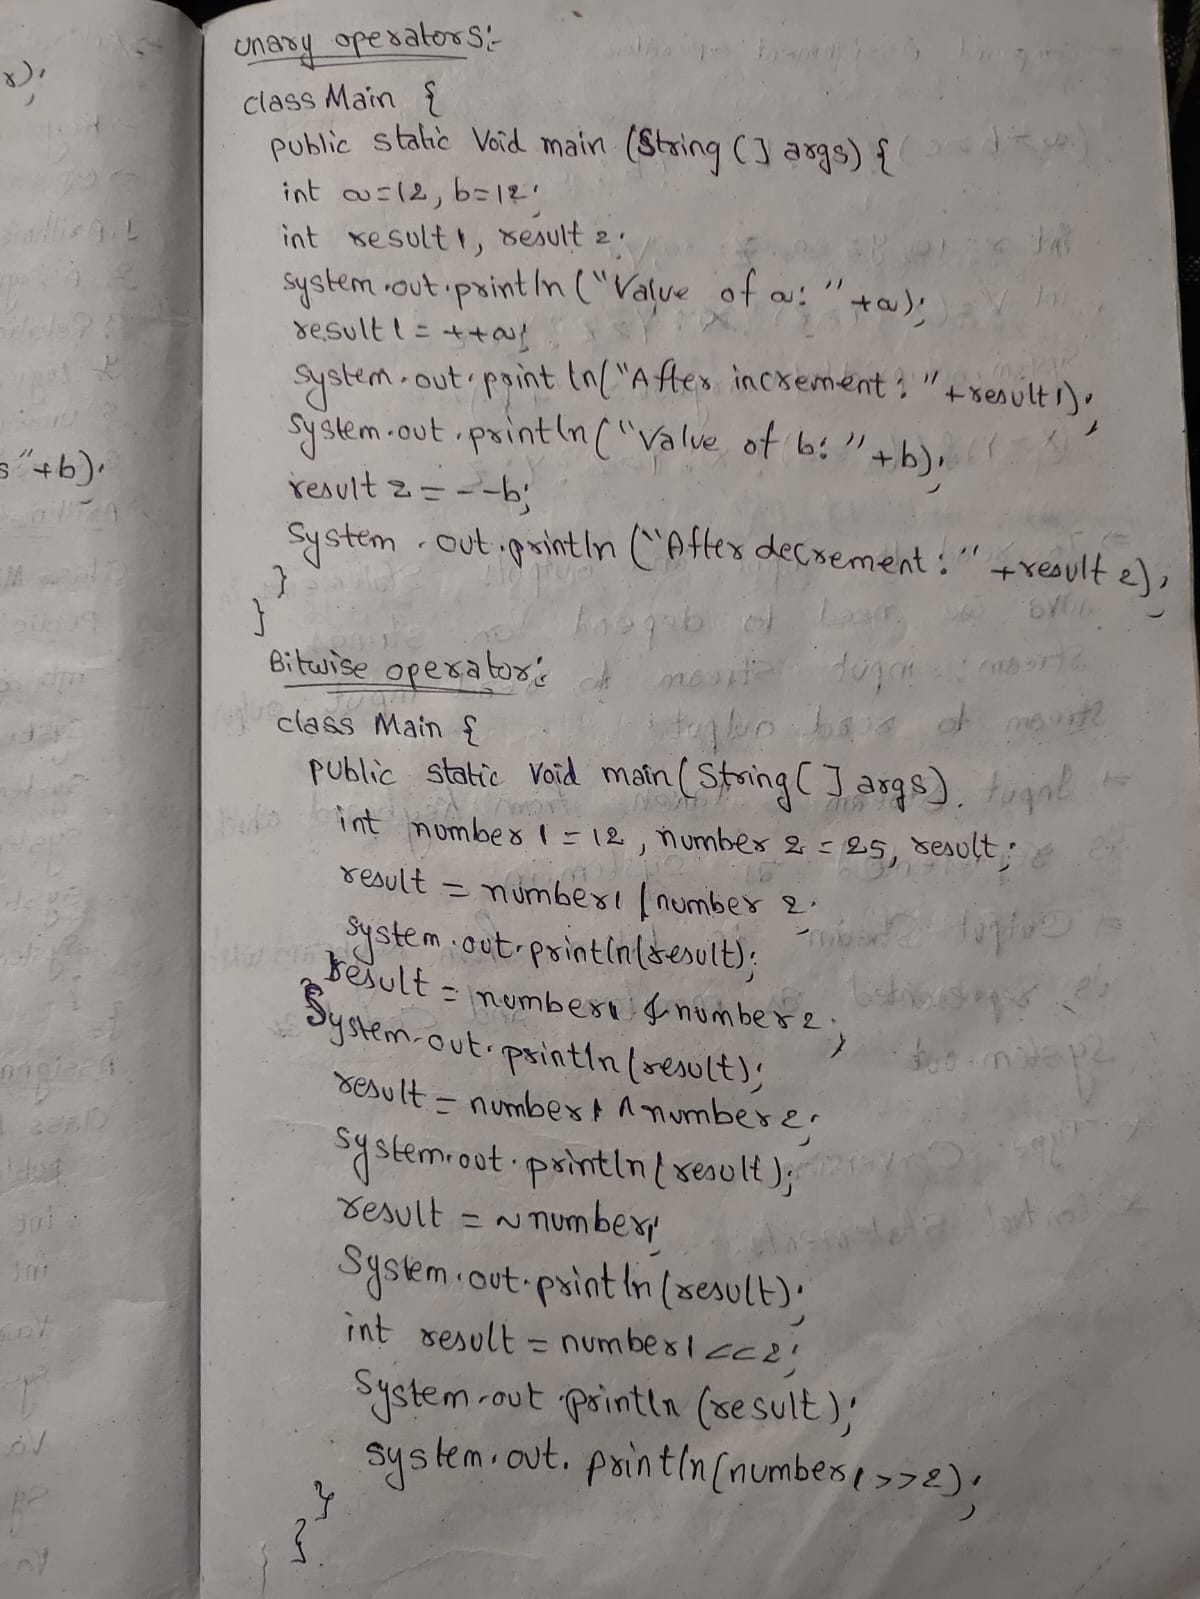 r);
s"+b);
Unary operators:-
class Main {
public static void main (String [] args) {
int a=12, b=12;
int result1, result 2;
system.out.println ("Value of a: "+a);
result1 = ++a;
System.out.println("After increment: "+result1);
System.out.println("Value of b: "+b);
result 2 = --b;
System.out.println ("After decrement: "+result 2);
}
}
Bitwise operator:
class Main {
public static void main (String [] args)
int number 1 = 12, number 2 = 25, result;
result = number1 | number 2;
System.out.println(result);
result = number1 & number2;
System.out.println(result);
result = number1 ^ number2;
system.out.println(result);
result = ~number1;
System.out.println(result);
int result = number1 <<2;
System.out println (result);
system.out.println(number1 >>2);
}
}